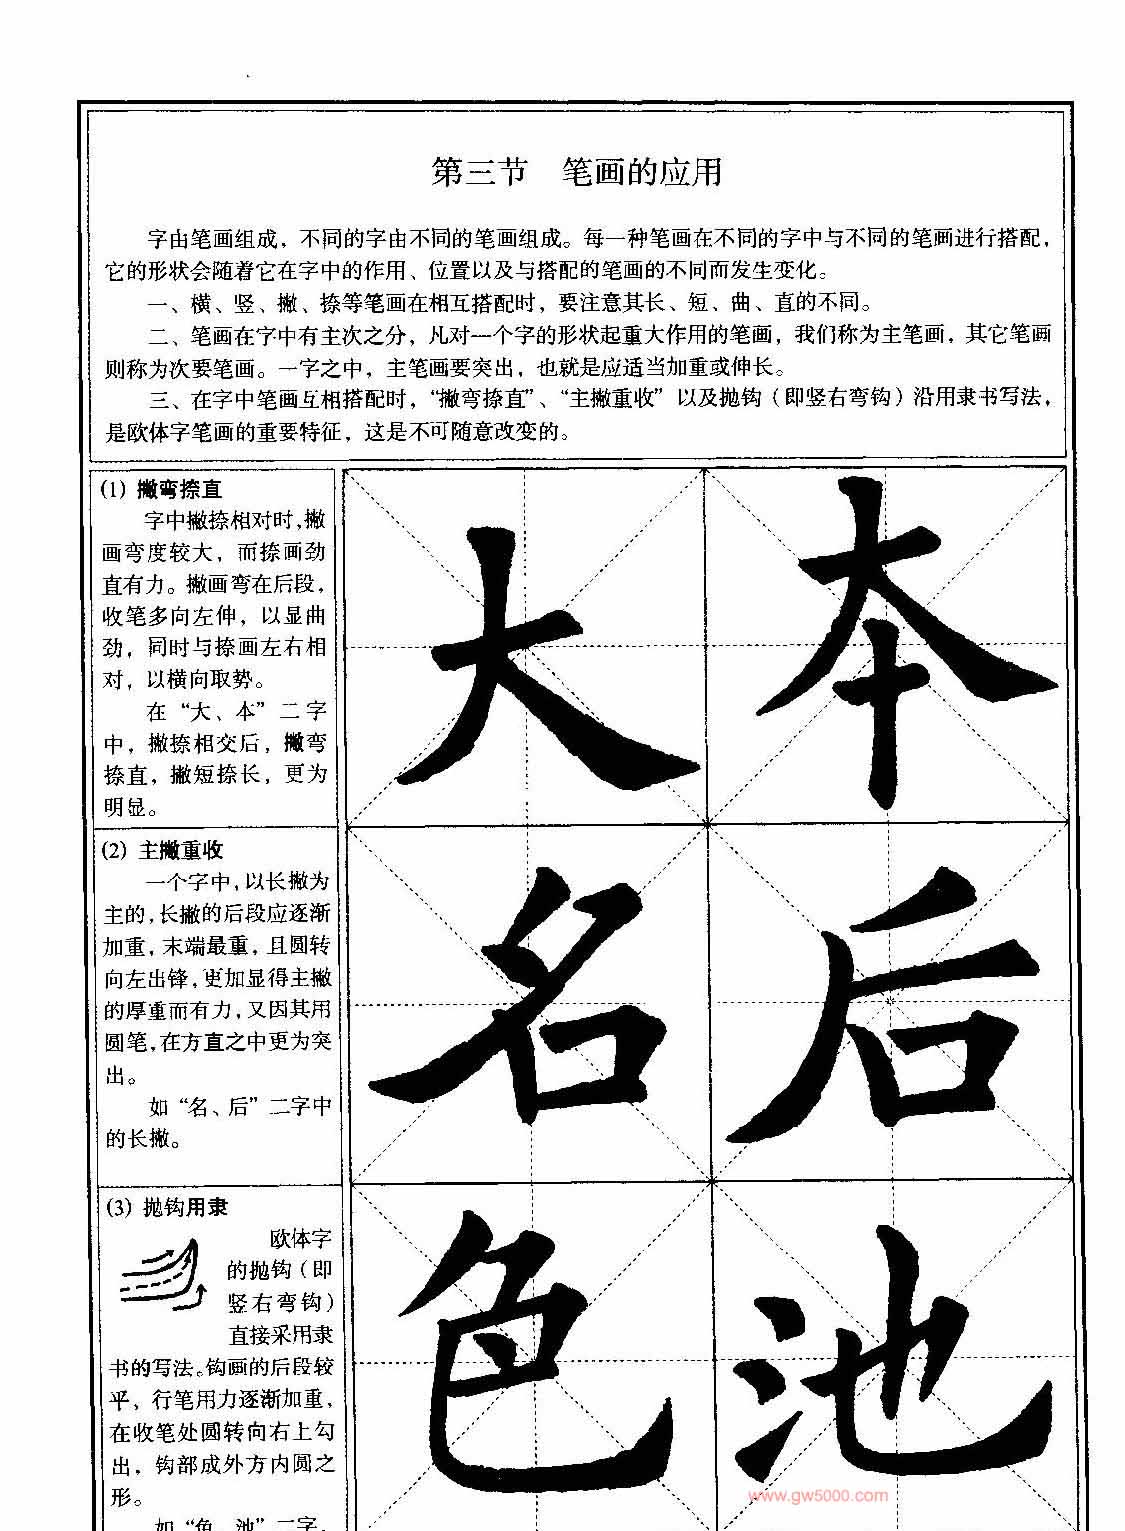 第三节　笔画的应用
字由笔画组成，不同的字由不同的笔画组成。每一种笔画在不同的字中与不同的笔画进行搭配，
它的形状会随着它在字中的作用、位置以及与搭配的笔画的不同而发生变化。
一、横、竖、撇、捺等笔画在相互搭配时，要注意其长、短、曲、直的不同。
二、笔画在字中有主次之分，凡对一个字的形状起重大作用的笔画，我们称为主笔画，其它笔画
则称为次要笔画。一字之中，主笔画要突出，也就是应适当加重或伸长。
三、在字中笔画互相搭配时，“撇弯捺直”、“主撇重收”以及抛钩（即竖右弯钩）沿用隶书写法，
是欧体字笔画的重要特征，这是不可随意改变的。
(1) 撇弯捺直
字中撇捺相对时，撇
画弯度较大，而捺画劲
直有力。撇画弯在后段，
收笔多向左伸，以显曲
劲，同时与捺画左右相
对，以横向取势。
在“大、本”二字
中，撇捺相交后，撇弯
捺直，撇短捺长，更为
明显。
大 本
(2) 主撇重收
一个字中，以长撇为
主的，长撇的后段应逐渐
加重，末端最重，且圆转
向左出锋，更加显得主撇
的厚重而有力，又因其用
圆笔，在方直之中更为突
出。
如“名、后”二字中
的长撇。
名 后
(3) 抛钩用隶
欧体字
的抛钩（即
竖右弯钩）
直接采用隶
书的写法。钩画的后段较
平，行笔用力逐渐加重，
在收笔处圆转向右上勾
出，钩部成外方内圆之
形。
如“色、池”二字，
色 池
www.gw5000.com